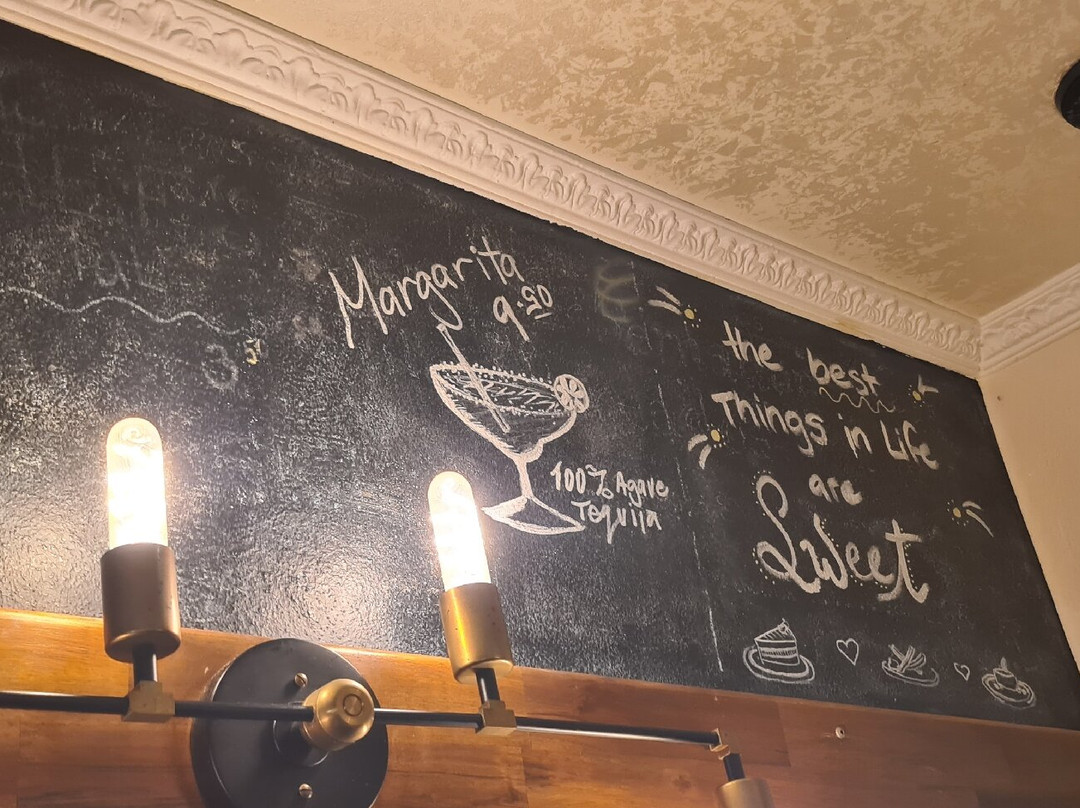 Margarita
9.50
100% Agave
Tequila
the best
Things in Life
are
Sweet